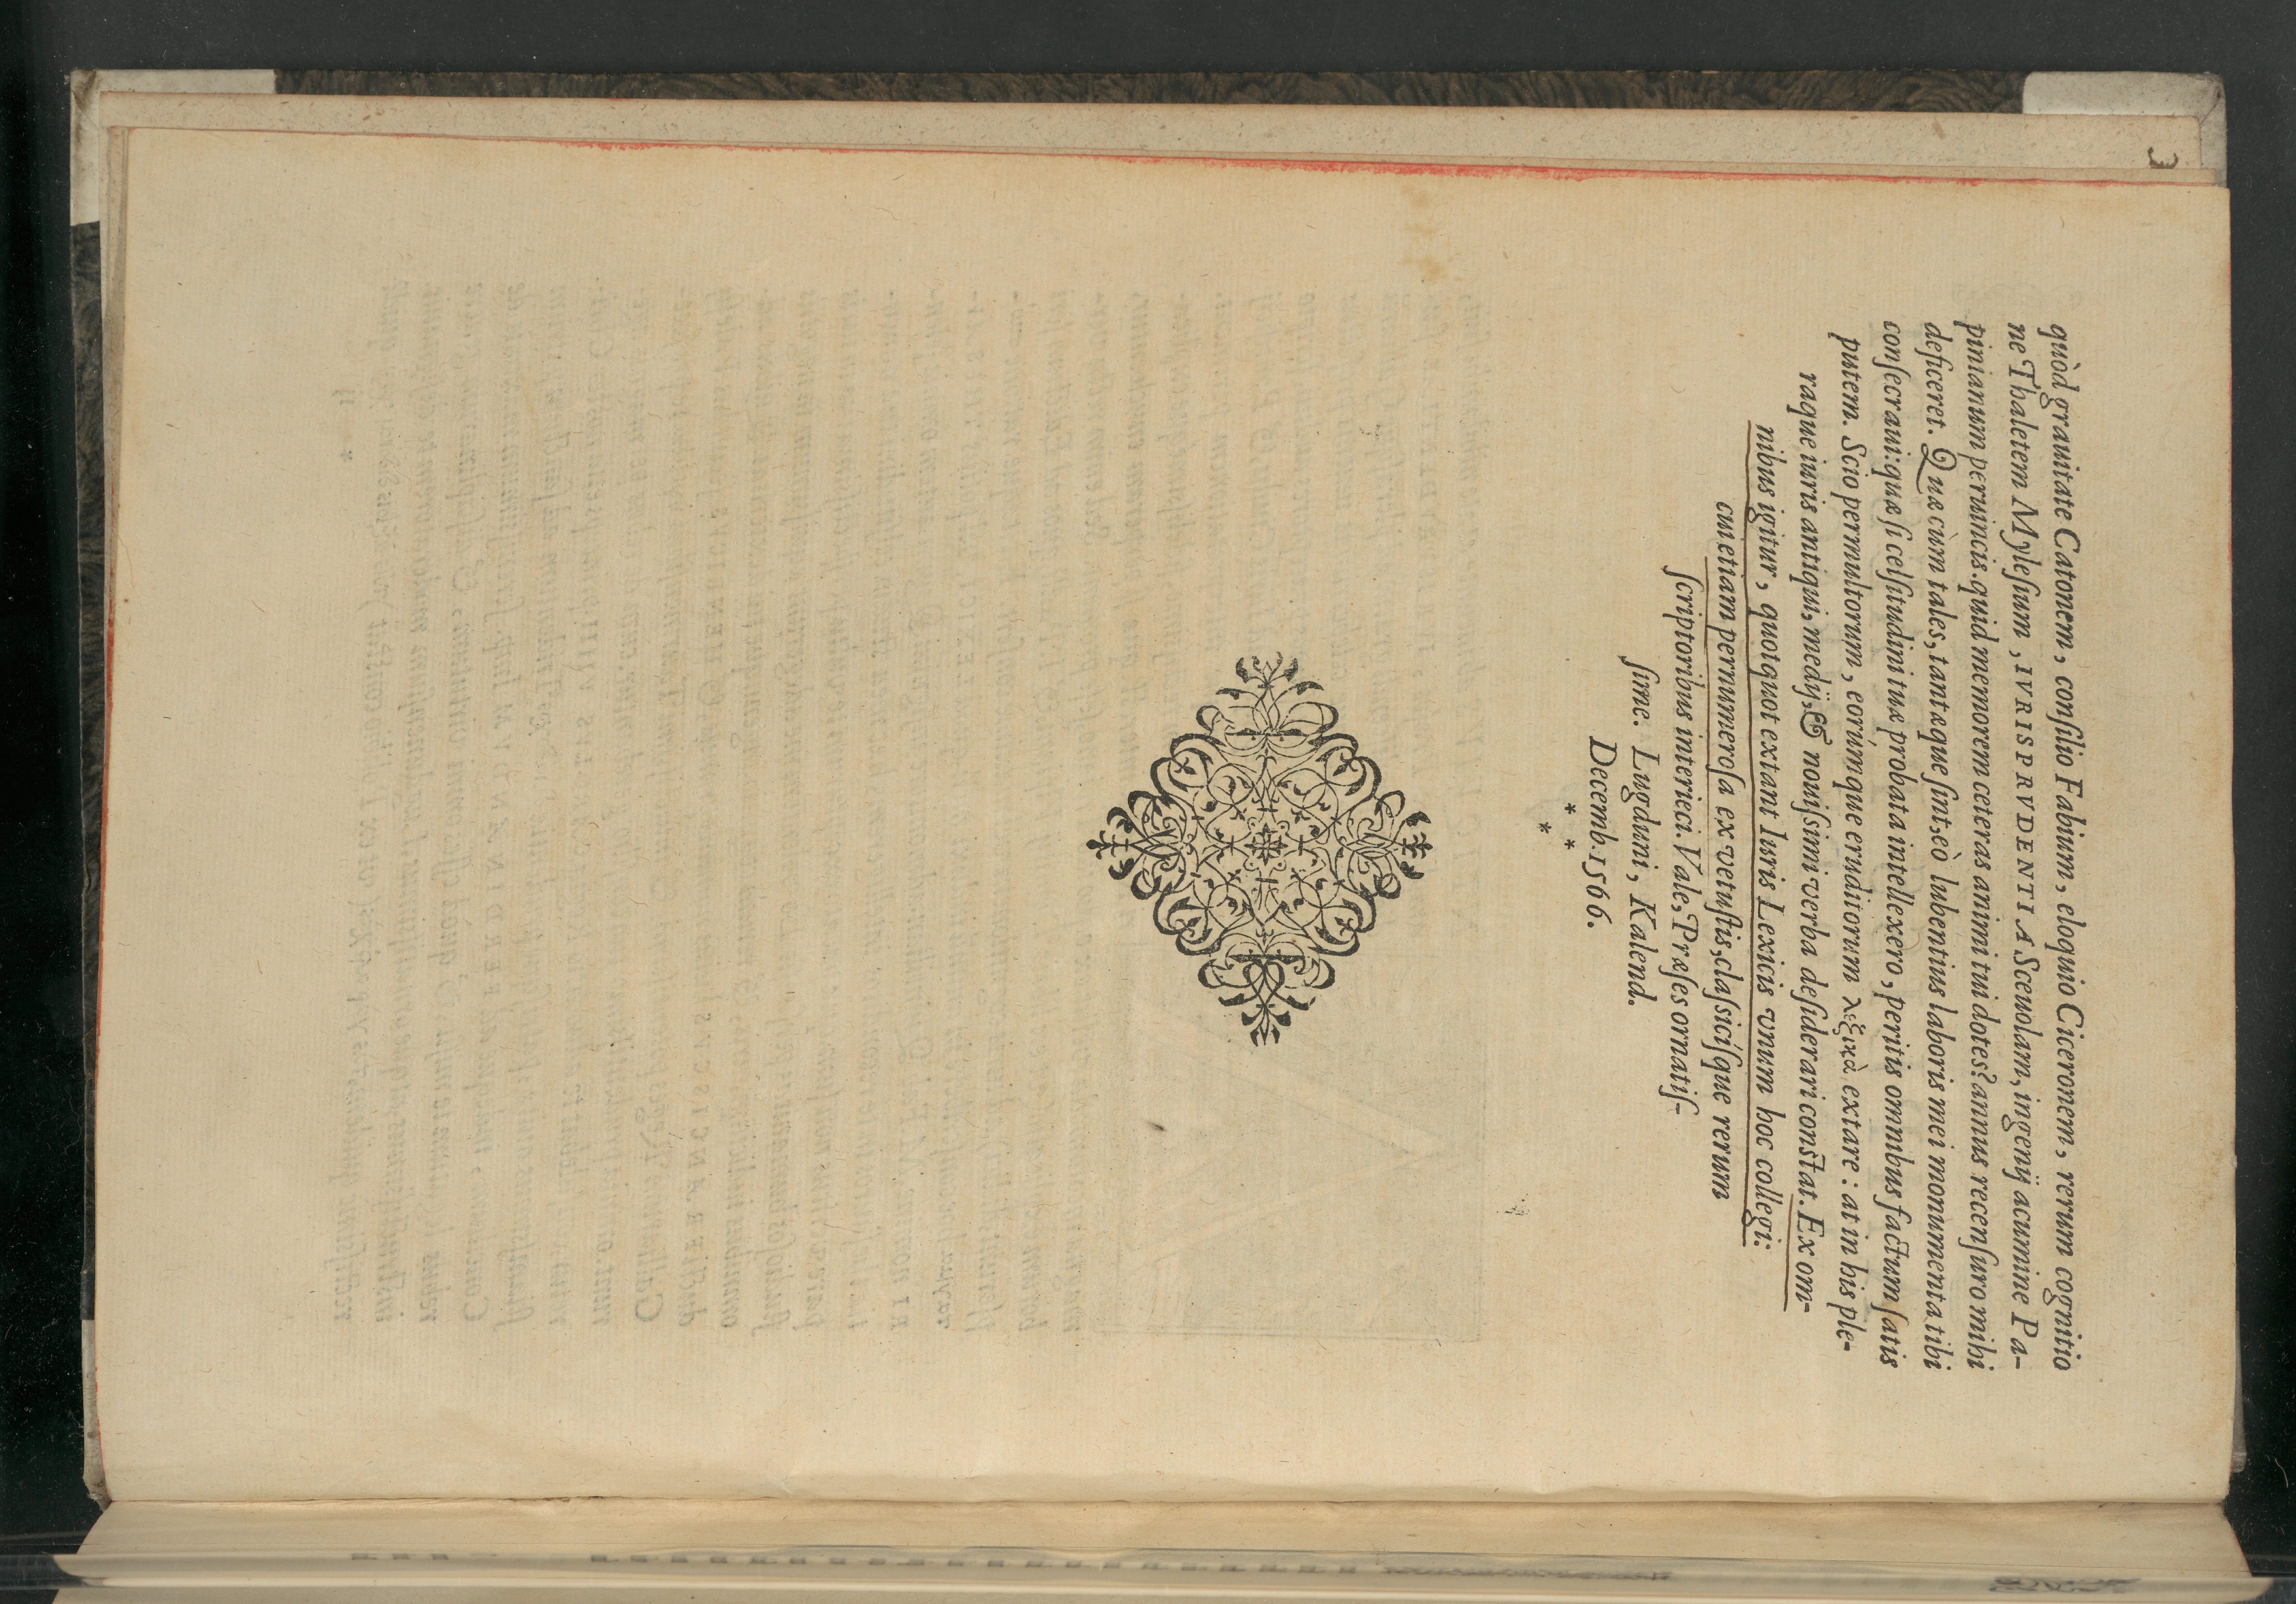 quòd grauitate Catonem, conſilio Fabium, eloquio Ciceronem, rerum cognitio
ne Thaletem Myleſium, IVRISPRVDENTIA Sceuolam, ingenij acumine Pa-
pinianum peruincis. quid memorem ceteras animi tui dotes? annus recenſuro mihi
deficeret. Quæ cùm tales, tantæque ſint, eò lubentius laboris mei monumenta tibi
conſecraui: quæ ſi celſitudini tuæ probata intellexero, peritis omnibus factum ſatis
putem. Scio permultorum, eorúmque eruditorum λεξικὰ extare: at in his ple-
raque iuris antiqui, medij, & nouiſsimi verba deſiderari conſtat. Ex om-
nibus igitur, quotquot extant Iuris Lexicis vnum hoc collegi:
cui etiam pernumeroſa ex vetuſtis, claſsiciſque rerum
ſcriptoribus interieci. Vale, Præſes ornatiſ-
ſime. Lugduni, Kalend.
Decemb. 1566.
* *
*